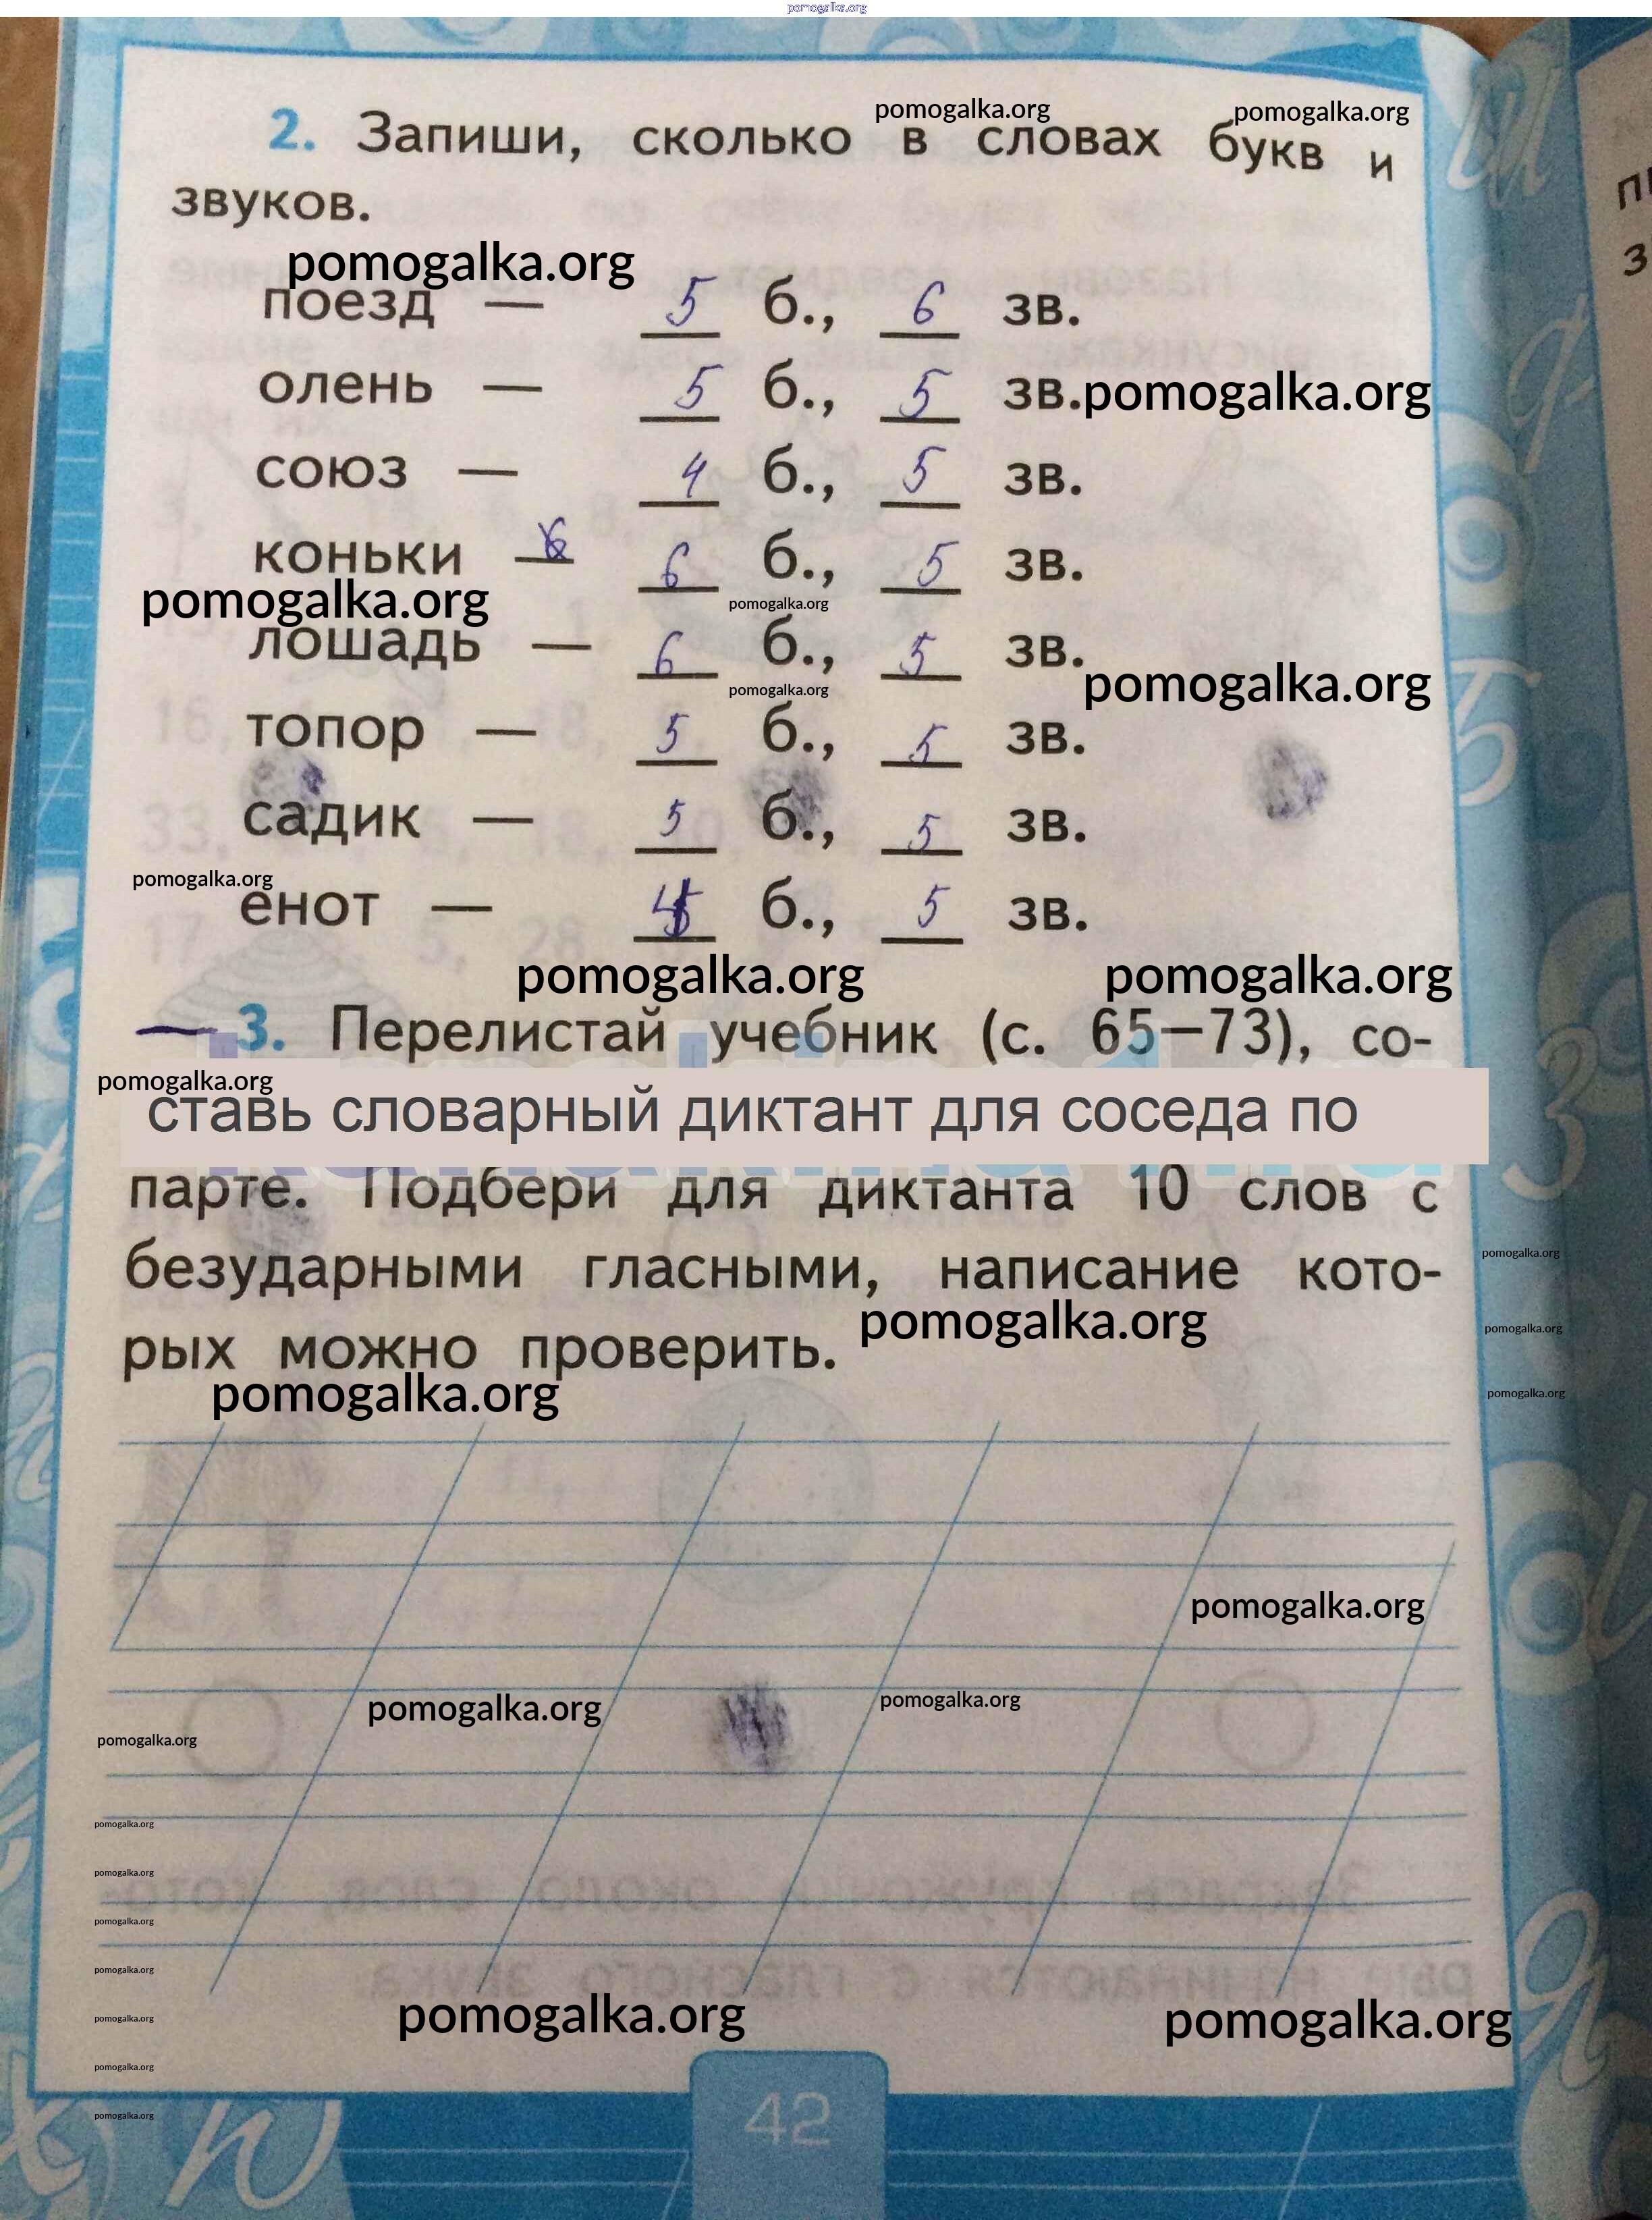 pomogalka.org
pomogalka.org pomogalka.org
2. Запиши, сколько в словах букв и
звуков.
pomogalka.org
поезд — 5 б., 6 зв.
олень — 5 б., 5 зв. pomogalka.org
союз — 4 б., 5 зв.
коньки — 6 б., 5 зв.
pomogalka.org pomogalka.org
лошадь — 6 б., 5 зв.
pomogalka.org pomogalka.org
топор — 5 б., 5 зв.
садик — 5 б., 5 зв.
pomogalka.org
енот — 4 б., 5 зв.
pomogalka.org pomogalka.org
3. Перелистай учебник (с. 65—73), со-
pomogalka.org
ставь словарный диктант для соседа по
парте. Подбери для диктанта 10 слов с
pomogalka.org
безударными гласными, написание кото-
pomogalka.org pomogalka.org
рых можно проверить.
pomogalka.org pomogalka.org
pomogalka.org
pomogalka.org pomogalka.org
pomogalka.org
pomogalka.org
pomogalka.org
pomogalka.org
pomogalka.org
pomogalka.org pomogalka.org pomogalka.org
pomogalka.org
pomogalka.org
42